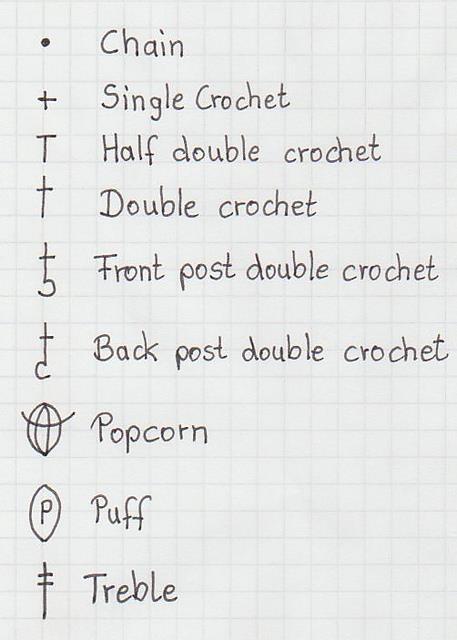 • Chain
+ Single Crochet
T Half double crochet
† Double crochet
Front post double crochet
Back post double crochet
Popcorn
P Puff
Treble